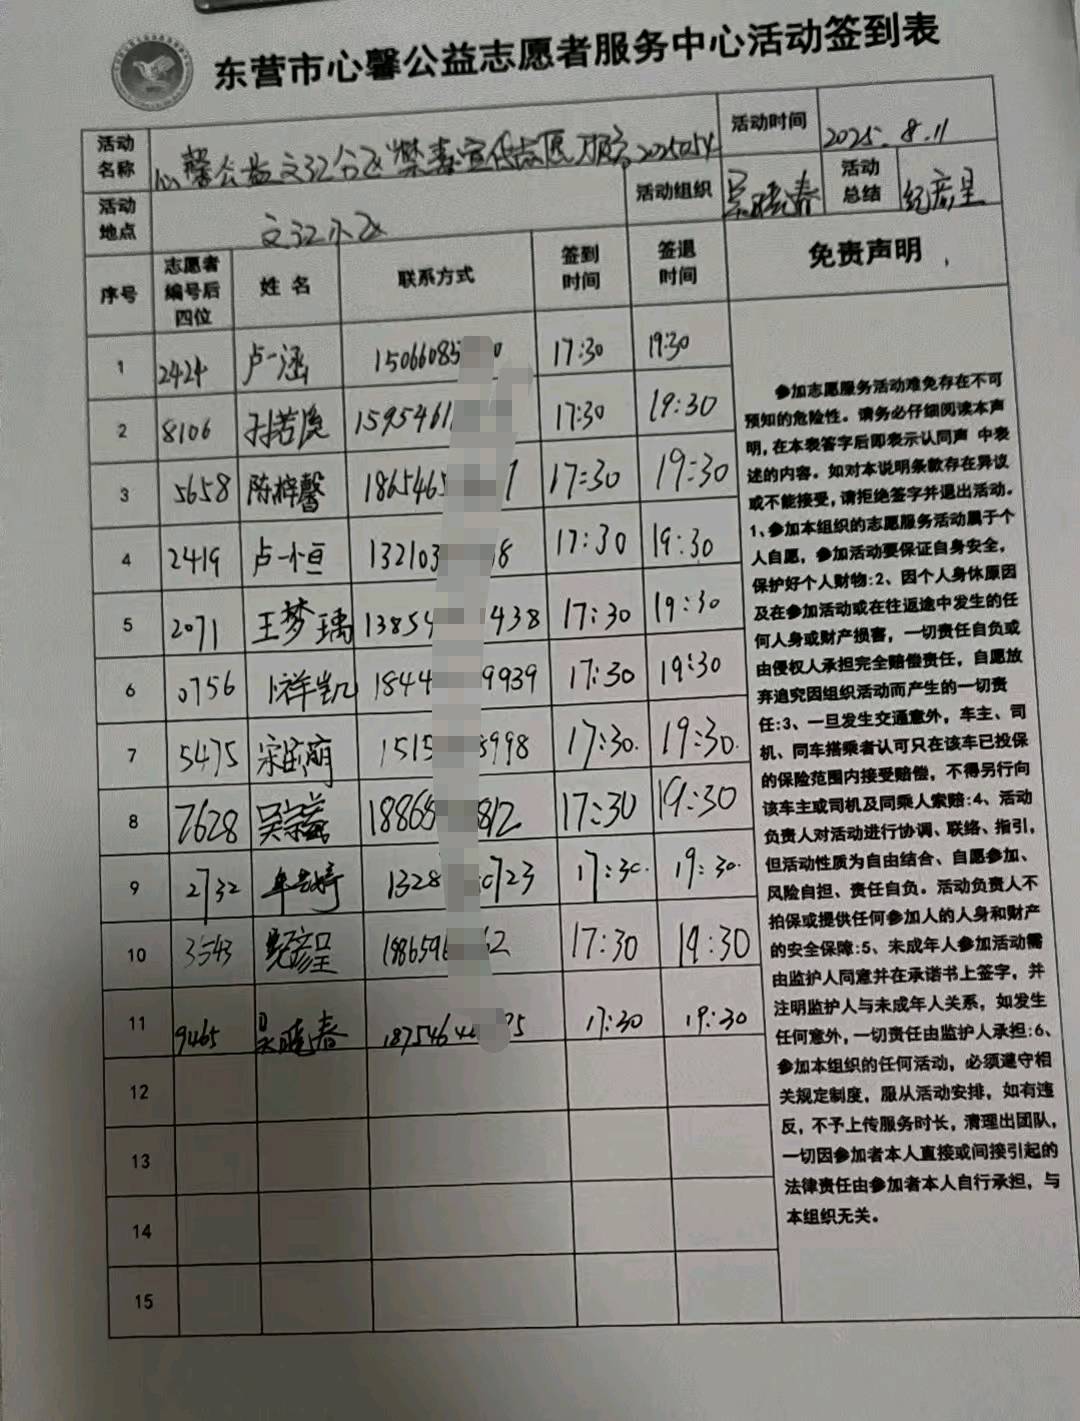 东营市心馨公益志愿者服务中心活动签到表
活动名称 心馨公益文汇分队禁毒宣传志愿服务 活动时间 2025.8.11
活动地点 文汇小区 活动组织 吴晓春 活动总结 纪彦呈
序号 志愿者编号后四位 姓名 联系方式 签到时间 签退时间 免责声明
1 2424 卢一涵 15066085 0 17:30 19:30
2 8106 1595461 17:30 19:30
3 5658 陈梓馨 1865465 1 17:30 19:30
4 2419 卢一恒 132103 8 17:30 19:30
5 2071 王梦瑀 1385 438 17:30 19:30
6 0756 祥凯 1844 9939 17:30 19:30
7 5475 1515 8998 17:30. 19:30.
8 7628 18865 812 17:30 19:30
9 2732 1328 0723 17:30. 19:30.
10 3543 纪彦呈 1886596 62 17:30 19:30
11 9465 吴晓春 187546 17:30 19:30
12
13
14
15
参加志愿服务活动难免存在不可
预知的危险性。请务必仔细阅读本声
明，在本表答字后即表示认同声 中表
述的内容。如对本说明条款存在异议
或不能接受，请拒绝签字并退出活动。
1、参加本组织的志愿服务活动属于个
人自愿，参加活动要保证自身安全，
保护好个人财物:2、因个人身休原因
及在参加活动或在往返途中发生的任
何人身或财产损害，一切责任自负或
由侵权人承担完全赔偿责任，自愿放
弃追究因组织活动而产生的一切责
任:3、一旦发生交通意外，车主、司
机、同车搭乘者认可只在该车已投保
的保险范围内接受赔偿，不得另行向
该车主或司机及同乘人索赔:4、活动
负责人对活动进行协调、联络、指引，
但活动性质为自由结合、自愿参加、
风险自担、责任自负。活动负责人不
拍保或提供任何参加人的人身和财产
的安全保障:5、未成年人参加活动需
由监护人同意并在承诺书上签字，并
注明监护人与未成年人关系，如发生
任何意外，一切责任由监护人承担:6、
参加本组织的任何活动，必须遵守相
关规定制度，服从活动安排，如有违
反，不予上传服务时长，清理出团队，
一切因参加者本人直接或间接引起的
法律责任由参加者本人自行承担，与
本组织无关。